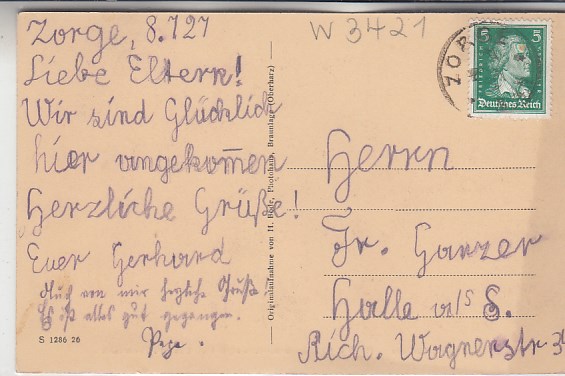 Zorge, 8.7.27
Liebe Eltern!
Wir sind Glücklich
hier angekom̄en
Herzliche Grüße!
Euer Gerhard
Auch von mir herzliche Grüße.
Es ist alles gut gegangen.
S 1286 26
Originalaufnahme von H. Photohaus, Braunlage (Oberharz)
W 3421
ZOR
5 5
FRIEDRICH
Deutsches Reich
Herrn
Fr. Garzer
Halle a/S S.
Rich. Wagnerstr 3